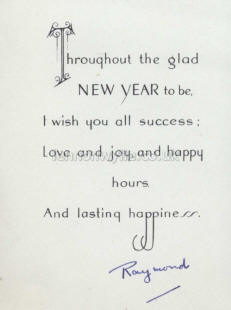 Throughout the glad
NEW YEAR to be,
I wish you all success;
Love and joy and happy
hours,
And lasting happiness.
Raymond